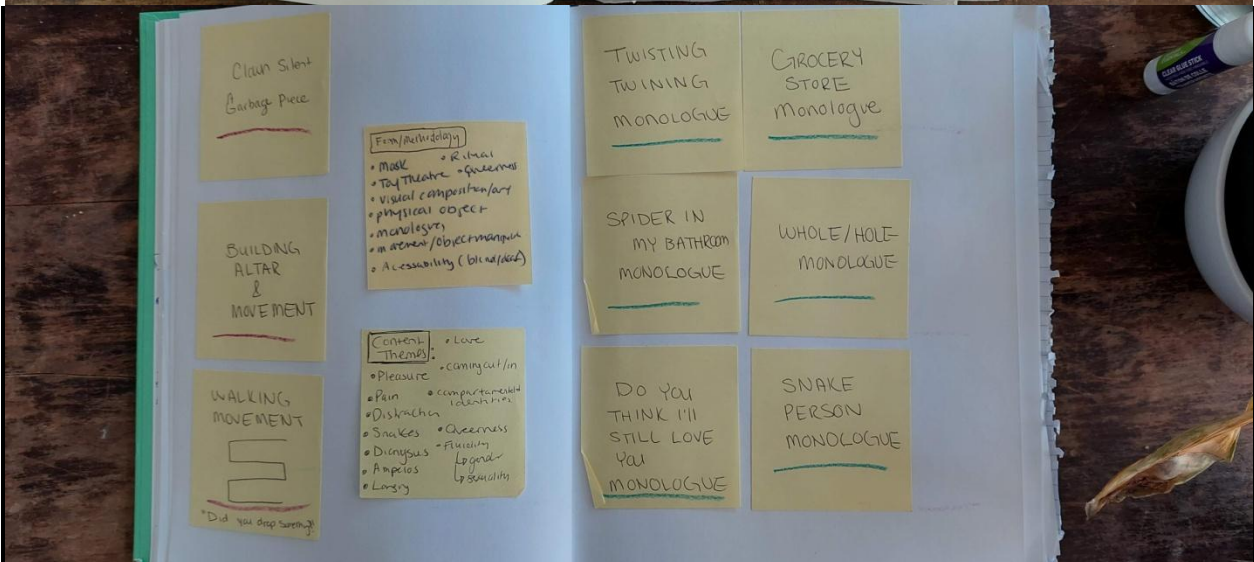 Clown Silent
Garbage Piece
BUILDING
ALTAR
&
MOVEMENT
WALKING
MOVEMENT
"Did you drop something?"
Form/Methodology
• Mask
• Ritual
• Toy Theatre
• Queerness
• visual composition/
• physical object
• monologues
• movement/object
• Acessability (blind/deaf)
Content
Themes:
• Love
• Pleasure
• coming out/in
• Pain
• identities
• Distraction
• Snakes
• Queerness
• Dionysus
• Fluidity
↳ gender
• Ampelos
↳ sexuality
•
TWISTING
TWINING
MONOLOGUE
GROCERY
STORE
Monologue
SPIDER IN
MY BATHROOM
MONOLOGUE
WHOLE/HOLE
MONOLOGUE
DO YOU
THINK I'LL
STILL LOVE
YOU
MONOLOGUE
SNAKE
PERSON
MONOLOGUE
CLEAR GLUE STICK